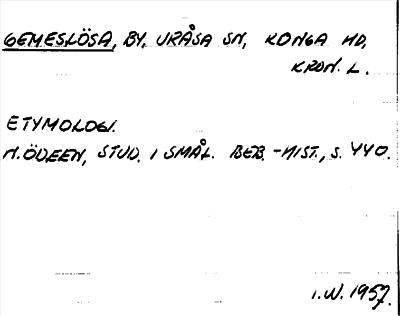 GEMESLÖSA, BY, URÅSA SN, KONGA HD,
KRON. L.
ETYMOLOGI.
N. ÖDEEN, STUD. I SMÅL. BEB.-HIST., S. 440.
I.W. 1957.